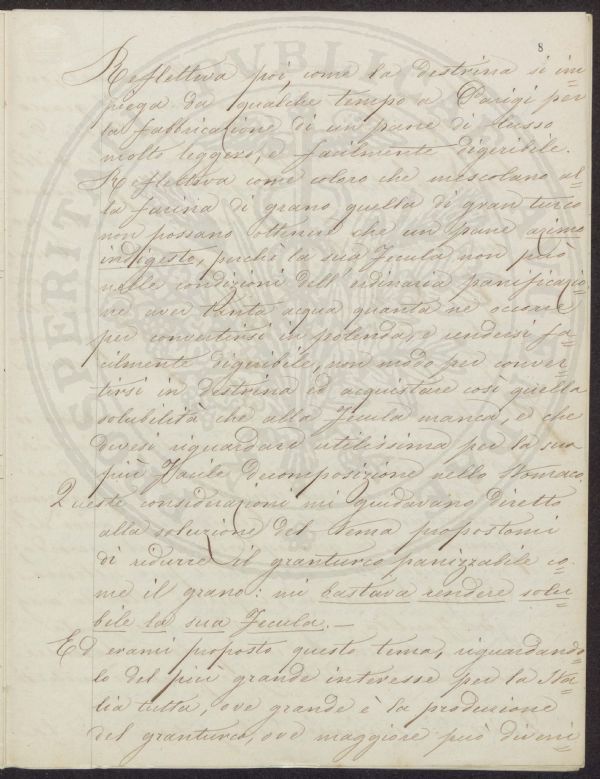 8
Reflettiva poi, come la destrina si im=
piega da qualche tempo a Parigi per
la fabbricazione di un pane di lusso
molto leggero, e facilmente digeribile.
Reflettiva come coloro che mescolano al=
la farina di grano quella di gran turco
non possano ottenere che un pane azimo
indigesto, perchè la sua Fecula non può
nelle condizioni dell'ordinaria panificazio=
ne aver tanta acqua quanta ne occorre
per convertirsi in polenda, e rendersi fa=
cilmente digeribile, non modo per conver=
tirsi in destrina ed acquistare così quella
solubilità che alla Fecula manca, e che
devesi riguardare utilissima per la sua
più facile decomposizione nello stomaco.
Queste considerazioni mi guidavano diretto
alla soluzione del tema propostomi
di ridurre il granturco panizzabile co=
me il grano: mi bastava rendere solu=
bile la sua Fecula.—
Ed erami proposto questo tema, riguardando=
lo del più grande interesse per la Ita=
lia tutta, ove grande è la produzione
del granturco, ove maggiore può diveni